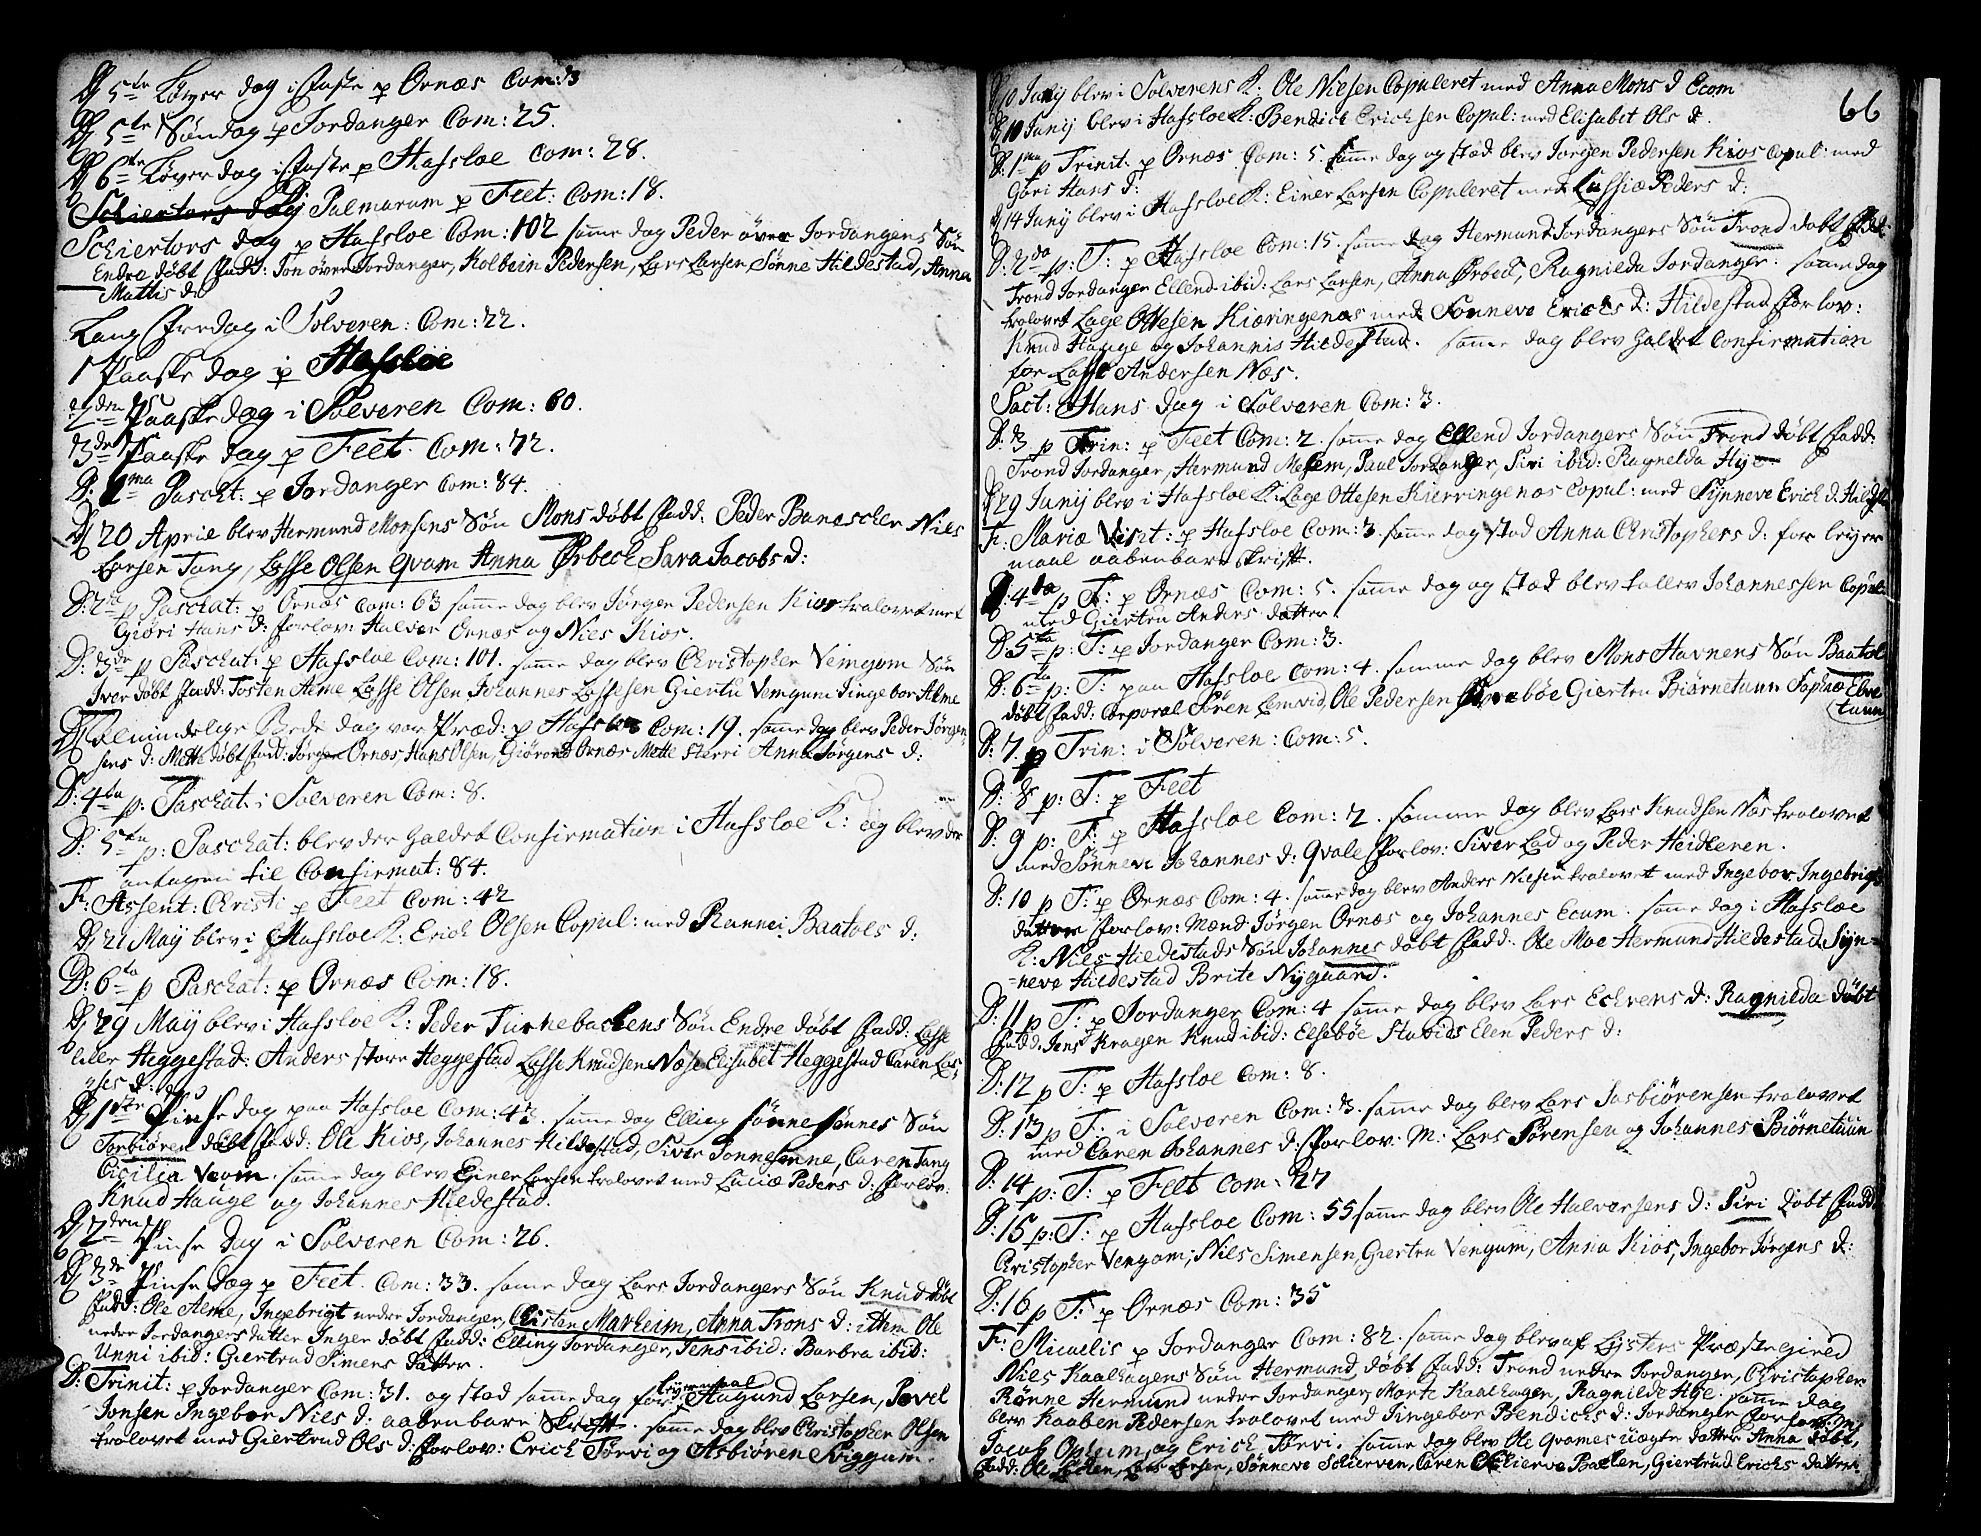 D 5te Løver dag i faste p Ornæs Com: 3
D 5te Søndag p Jordanger Com: 25.
D 6te Løverdag i faste p Hafsloe Com: 28.
Palmarum p Feet: Com: 18.
Schiertors dag p Hafsloe Com: 102 samme dag Peder øvre Jordangers Søn
Endre døbt fadd: Jon øvre Jordanger, Kolbein Pedersen, Lars Larsen, Sønne Hildestad, Anna
Mattis d:
Lang fredag i Solveren: Com: 22.
1 Paaske dag p Hafsloe
2den Paaske dag i Solveren Com: 60.
3de Paaske dag p Feet. Com: 72.
D: 1ma Paschat: p Jordanger Com: 84.
D 20 Aprile blev Hermund Monsens Søn Mons døbt fadd: Peder Banescher Niels
Larsen Tang, Lasse Olsen Qvam Anna Ørbech Sara Jacobs d:
D: 2da p Paschat: p Ornæs Com: 63 samme dag blev Jørgen Pedersen Kios trolovet met
Giøri Hans d: forlov: Halvor Ornæs og Niels Kios.
D: 3de p Paschat: p Hafsloe Com: 101. samme dag blev Christopher Vemgum Søn
Iver døbt fadd: Tosten Alme Lasse Olsen, Johannes Lassesen Giertru Vemgum Jingebor Alme
Almindelige Bede dag var Præd: p Hafsloe Com: 19. samme dag blev Peder Jørgen
sens d: Mette døbt fad: Jørgen Ornæs, Hans Olsen, Giørond Ornæs Mette sterri Anna Jørgens d:
D: 4ta p: Paschat: i Solveren Com: 8.
D: 5ta p: Paschat: blev der haldet Confirmation i Hafsloe K: og blev der
antagen til Confirmat: 84.
F: Assent: Christi p Feet Com: 42
D 21 May blev i Hafsloe K: Erich Olsen Copul: med Rannei Baatols d:
D: 6ta p Paschat: p Ornæs Com: 18.
D 29 May blev i Hafsloe K: Peder Turnebachens Søn Endre døbt fadd: Lasse
lille Heggestad: Anders store Heggestad Lasse Knudsen Næs Elisabet Heggestad Caren Las
ses d:
D 1ste Pinse dag paa Hafsloe Com: 42. samme dag Elling Sønnesønnes Søn
Torbiøren døbt fadd: Ole Kios, Johannes Hildestad, Siver Sonnesenne, Caren Tang
Cicilia Veom. samme dag blev Einer Larsen trolovet med Luciæ Peders d: forlov:
Knud Hauge og Johannes Hildestad.
D 2den Pinse dag i Solveren Com: 26.
D 3de Pinse dag p Feet. Com: 33. samme dag Lars Jordangers Søn Knud døbt
fadd: Ole Alme, Ingebrigt nedre Jordanger, Christen Marheim, Anna Trons d: ithm Ole
nedre Jordangers datter Inger døbt fadd: Elling Jordanger, Jens ibid: Barbra ibid:
Unni ibid: Giertrud Simens datter.
D: Trinit: p Jordanger Com: 31. og stod samme dag for leyermaal Haagund Larsen, Povel
Jonsen Ingebor Niels d: aabenbare Skrift. samme dag blev Christopher Olsen
trolovet med Giertrud Ols d: forlov: Erich Tørvi og Asbiøren Sviggum.
66
D 10 Junij blev i Solverens K: Ole Nielsen Copuleret med Anna Mons d Ecom
D 10 Junij blev i Hafsloe K: Bendict Erichsen Copul: med Elisabet Ols d.
D: 1ma p Trinit: p Ornæs Com: 5. samme dag og stæd blev Jørgen Pedersen Kios Copul: med
Gøri Hans d:
D 14 Junij blev i Hafsloe K: Einer Larsen Copuleret med Lussiæ Peders d:
D: 2da p: T: p Hafsloe Com: 15. samme dag Hermund Jordangers Søn Trond døbt fadd:
Trond Jordanger Ellend ibid: Lars Larsen, Anna Ørbech, Ragnilda Jordanger. samme dag
trolovet Lage Ottesen Kiæringenæs med Sønneve Erichs d: Hildestad forlov:
Knud Hauge og Johannis Hildestad. samme dag blev haldet Confirmation
for Lasse Andersen Næs.
Sact: Hans dag i Solveren Com: 3.
D: 3 p Trin: p Feet Com: 2. samme dag Ellend Jordangers Søn Trond døbt fadd:
Trond Jordanger, Hermund Melhem, Paul Jordanger, Siri ibid: Ragnelda Hye
D 29 Junij blev i Hafsloe K: Lage Ottesen Kierringenæs Copul: med Synneve Erich d: Hildest
F: Mariæ Visit: p Hafsloe Com: 3 samme dag stod Anna Christophers d: for leyer
maal aabenbare Skrift.
D: 4ta p T: p Ornæs Com: 5. samme dag og stæd blev Johannessen Copul:
med Giertru Anders datter.
D: 5ta p: T: p Jordanger Com: 3.
D: 6ta p: T: paa Hafsloe Com: 4. samme dag blev Mons Havnens Søn Baatol
døbt fadd: Corporal Søren Lemvid, Ole Pedersen Giertru Biørnetuun Sophiæ Elve
tuun
D: 7. p Trin: i Solveren: Com: 5.
D: 8 p: T: p Feet
D: 9 p: T: p Hafsloe Com: 2. samme dag blev Lars Knudsen Næs trolovet
med Sønneve Johannes d: Qvale forlov: Siver Lad og Peder Heidteren.
D: 10 p T: p Ornæs Com: 4. samme dag blev Anders Nielsen trolovet med Ingebor Ingebrigs
datter forlov: Mænd Jørgen Ornæs og Johannes Ecum. samme dag i Hafsloe
K: Niels Hildestads Søn Johannes døbt fadd: Ole Moe Hermund Hildestad Syn-
-neve Hildestad Brite Nygaard.
D: 11 p T: p Jordanger Com: 4 samme dag blev Lars Echrens d: Ragnilda døbt
fadd: Jens Kragen Knud ibid: Elsebøe Elen Peders d:
D: 12 p T: p Hafsloe Com: 8.
D: 13 p T: i Solveren Com: 3. samme dag blev Lars Sasbiørensen trolovet
med Caren Johannes d: forlov: M: Lars Sørensen og Johannes Biørnetuun
D: 14 p: T: p Feet Com: 27
D: 15 p: T: p Hafsloe Com: 55 samme dag blev Ole Halvorsens d: Siri døbt fadd:
Christopher Vengum, Niels Simensen, Giertru Vengum, Anna Kios, Ingebor Jørgens d:
D: 16 p T: p Ornæs Com: 35
F: Micaelis p Jordanger Com: 82. samme dag blev af Lysters Præstegield
Niels Kaalhagens Søn Hermund døbt fadd: Trond nedre Jordanger, Christopher
Rønne Hermund nedre Jordanger, Marte Kaalhagen, Ragnilde Hye. samme dag
blev Raaben Pedersen trolovet med Jingebor Bendichs d: Jordanger forlov: M:
Jacob Opheim og Erich Tørvi. samme dag blev Ole Qvames uægte datter Anna døbt,
fadd: Ole Lars Larsen, Sønneve Schierven, Caren Giertrud Erichs datter.